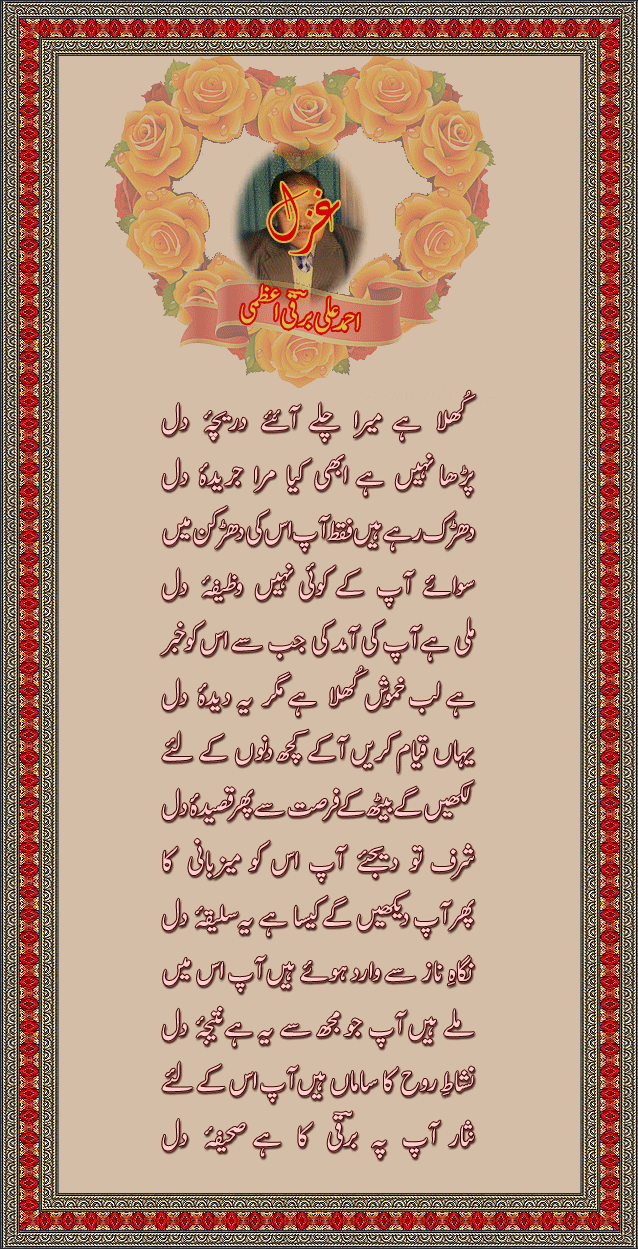 غزل
احمد علی برقؔی اعظمی
کُھلا ہے میرا چلے آئیے دریچۂ دل
پڑھا نہیں ہے ابھی کیا مرا جریدۂ دل
دھڑک رہے ہیں فقط آپ اس کی دھڑکن میں
سوائے آپ کے کوئی نہیں وظیفۂ دل
ملی ہے آپ کی آمد کی جب سے اس کو خبر
ہے لب خموش کُھلا ہے مگر یہ دیدۂ دل
یہاں قیام کریں آکے کچھ دنوں کے لئے
لکھیں گے بیٹھ کے فرصت سے پھر قصیدۂ دل
شرف تو دیجئے آپ اس کو میزبانی کا
پھر آپ دیکھیں گے کیسا ہے یہ سلیقۂ دل
نگاہِ ناز سے وارد ہوئے ہیں آپ اس میں
ملے ہیں آپ جو مجھ سے یہ ہے نتیجۂ دل
نشاطِ روح کا ساماں ہیں آپ اس کے لئے
نثار آپ پہ برقؔی کا ہے صحیفۂ دل